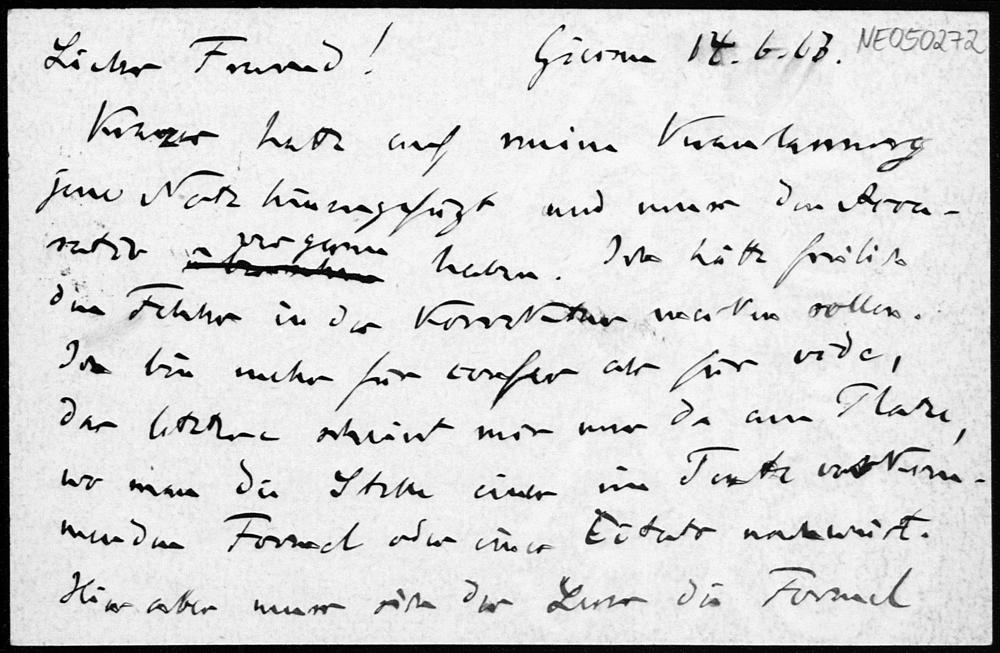 Lieber Freund! Giessen 14.6.13. NE050272
Kramer hatte auf meine Veranlassung
jene Notiz hinzugefügt und muss den Accu-
sativ vergessen haben. Ich hätte freilich
den Fehler in der Korrektur merken sollen.
Ich bin mehr für confer als für vide,
das letztere scheint mir nur da am Platze,
wo man die Stelle einer im Texte vorkom-
menden Formel oder eines Citats nachweist.
Hier aber muss sich der Leser die Formel